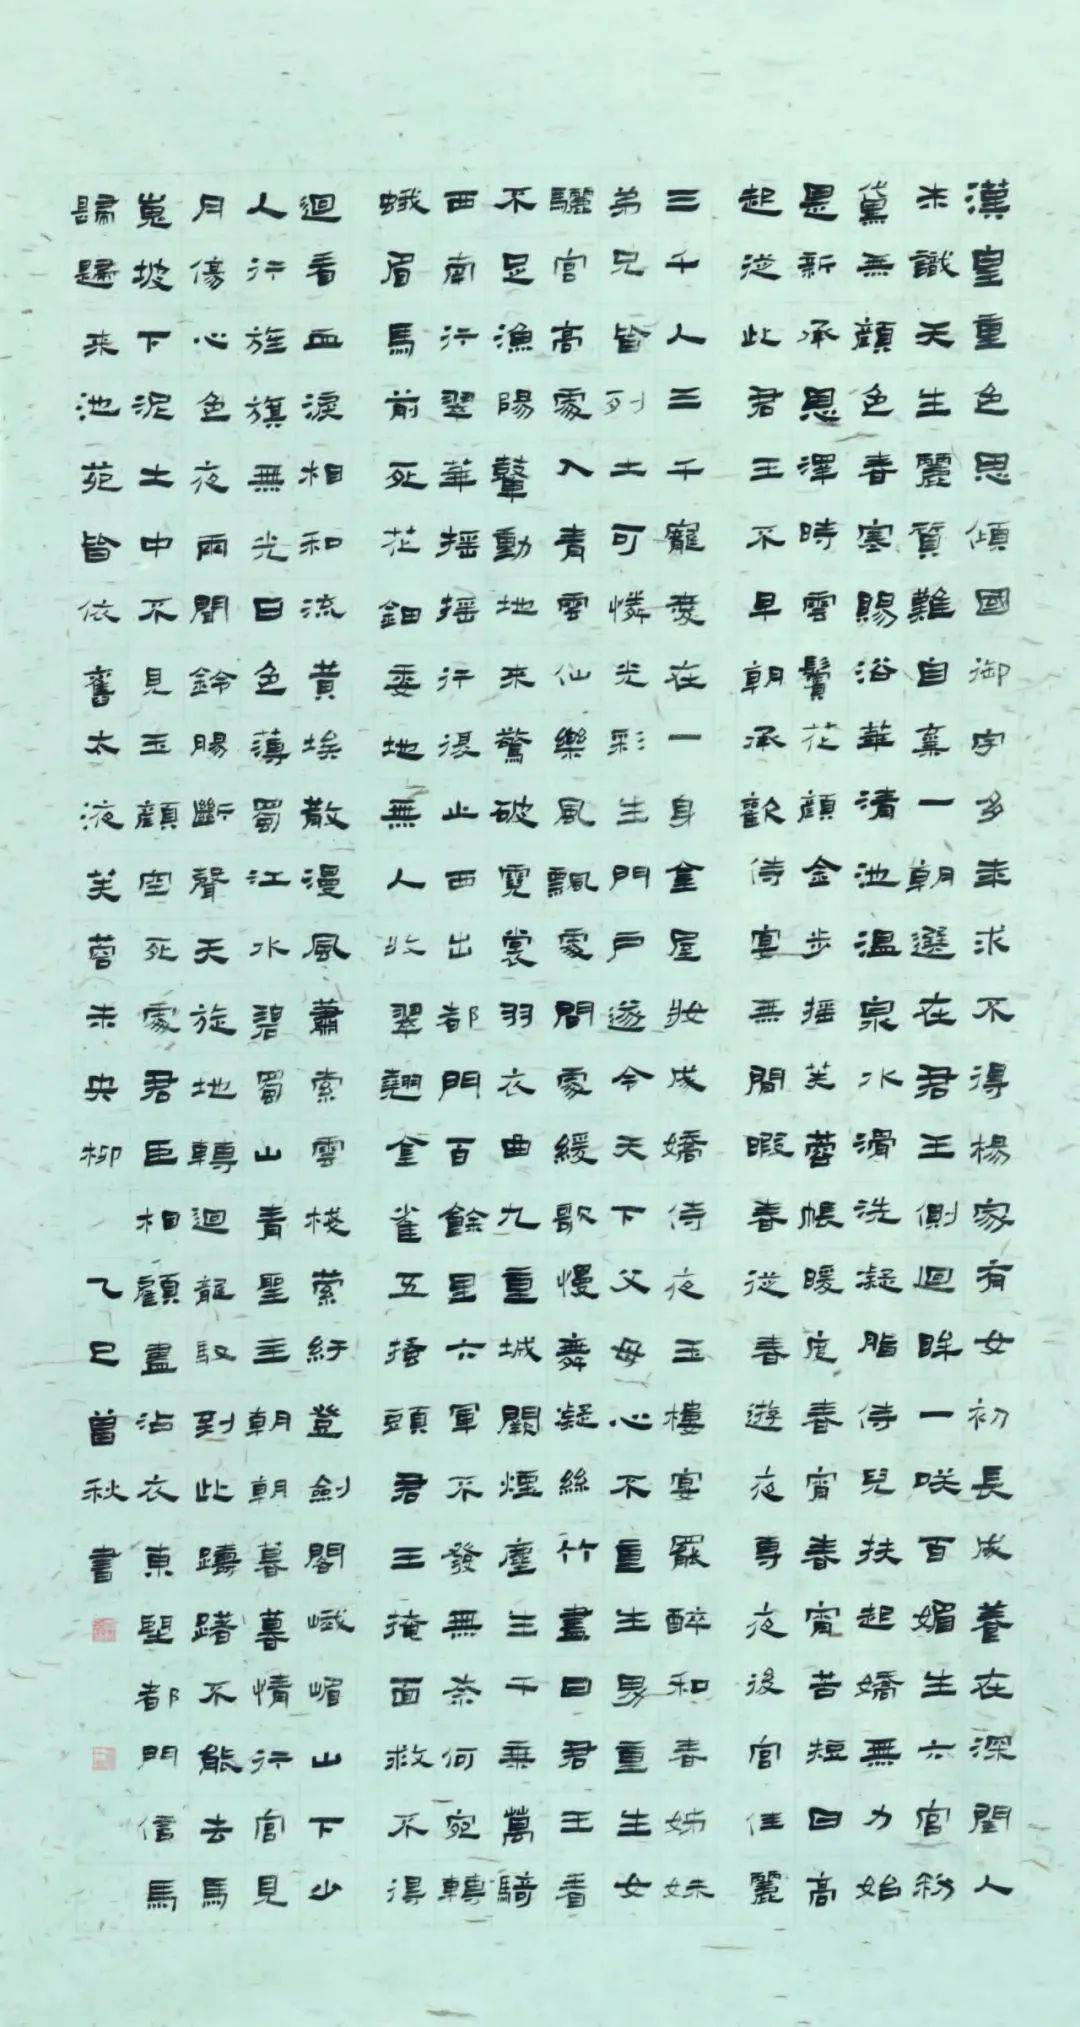 漢皇重色思傾國御宇多年求不得楊家有女初長成養在深閨人
未識天生麗質難自棄一朝選在君王側迴眸一咲百媚生六宮粉
黛無顏色春寒賜浴華清池溫泉水滑洗凝脂侍兒扶起嬌無力始
是新承恩澤時雲鬢花顏金步搖芙蓉帳暖度春宵春宵苦短日高
起從此君王不早朝承歡侍宴無閒暇春從春遊夜專夜後宮佳麗
三千人三千寵愛在一身金屋妝成嬌侍夜玉樓宴罷醉和春姊妹
弟兄皆列土可憐光彩生門戶遂令天下父母心不重生男重生女
驪宮高處入青雲仙樂風飄處聞處緩歌慢舞凝絲竹盡日君王看
不足漁陽鼙動地來驚破霓裳羽衣曲九重城闕煙塵生千乘萬騎
西南行翠華搖搖行復止西出都門百餘里六軍不發無奈何宛轉
蛾眉馬前死花鈿委地無人收翠翹金雀玉搔頭君王掩面救不得
迴看血淚相和流黃埃散漫風蕭索雲棧縈紆登劍閣峨嵋山下少
人行旌旗無光日色薄蜀江水碧蜀山青聖主朝朝暮暮情行宮見
月傷心色夜雨聞鈴腸斷聲天旋地轉迴龍馭到此躊躇不能去馬
嵬坡下泥土中不見玉顏空死處君臣相顧盡沾衣東望都門信馬
歸歸來池苑皆依舊太液芙蓉未央柳 乙巳曾秋書